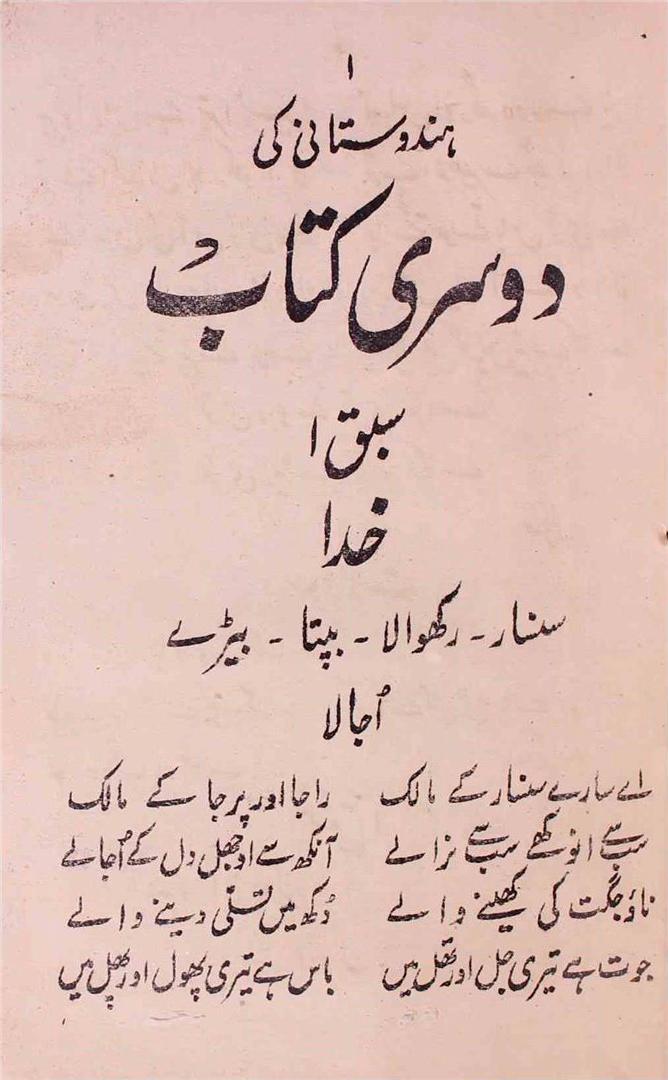 ۱
ہندوستانی کی
دوسری کتاب
سبق ۱
خدا
سنسار ۔ رکھوالا ۔ بپتا ۔ بیڑے
اُجالا
اے سارے سنسار کے مالک راجا اور پرجا کے مالک
سب سے انوکھے سب سے نرالے آنکھ سے اوجھل دل کے اُجالے
ناؤ جگت کی کھینے والے دُکھ میں تسلّی دینے والے
جوت ہے تیری جل اور تھل میں باس ہے تیری پھول اور پھل میں